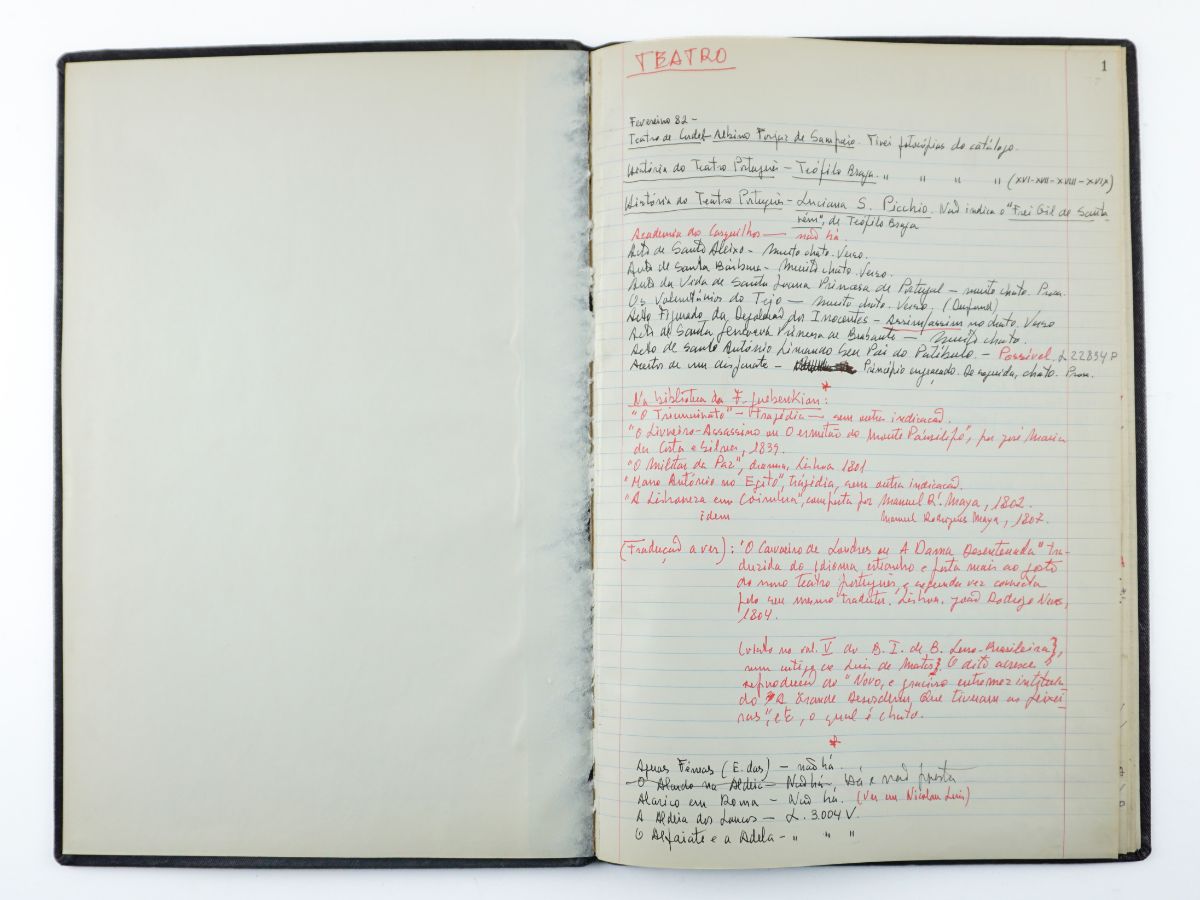 TEATRO
1
Fevereiro 82 -
Teatro de Cordel - Albino Forjaz de Sampaio. Tirei fotocópias do catálogo.
História do Teatro Português - Teófilo Braga. " " " " (XVI-XVII-XVIII-XVIX)
História do Teatro Português - Luciana S. Picchio. Não indica o "Frei Gil de Santa-
rém", de Teófilo Braga
Academia dos Casquilhos — não há.
Auto de Santo Aleixo - Muito chato. Verso.
Auto de Santa Bárbara - Muito chato. Verso.
Auto da Vida de Santa Joana Princesa de Portugal - muito chato. Prosa.
Os Voluntários do Tejo — Muito chato. Verso.
Acto Figurado da Degolação dos Inocentes - Assim/assim no chato. Verso
Acto de Santa Genoveva Princesa de Brabante - Muito chato.
Acto de Santo António Livrando Seu Pai do Patíbulo. - Possível. L 22834 P
Acertos de um disparate - Princípio engraçado. De seguida, chato. Prosa.
*
Na biblioteca da F. Gulbenkian:
"O Triunvirato" - tragédia - sem outra indicação.
"O Livreiro-Assassino ou O ermitão do Monte Pausilipo", por José Maria
da Costa e Silva, 1839.
"O Militar da Paz", drama, Lisboa 1801
"Marco António no Egito", tragédia, sem outra indicação.
"A Lisboneza em Coimbra", composta por Manuel R. Maya, 1802.
idem Manuel Rodrigues Maya, 1807.
(Tradução a ver): "O Carvoeiro de Londres ou A Dama Desentoada" tra-
duzida do idioma estranho e posta mais ao gosto
do novo teatro português, e segunda vez correcta
pelo seu mesmo tradutor. Lisboa. João Rodrigo Neves,
1804.
Citado no vol. V do B. I. de B. Luso-Brasileira},
num artigo de Luis de Matos}. O dito
reprodução do "Novo, e gracioso entremez intitula-
do "A Grande Desordem, Que tiveram as Peixei-
ras", etc, o qual é chato.
*
Aguas Férreas (E. das) - não há.
O Alardo na Aldeia - Não há. Há e não presta
Alarico em Roma - Não há. (Ver em Nicolau Luis)
A Aldeia dos Loucos - L. 3.004 V.
O Alfaiate e a Adela - " " "